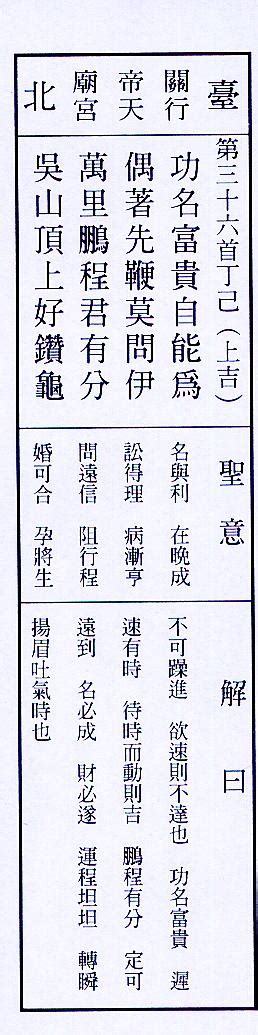 臺
北
關行
帝天
廟宮
第三十六首丁己（上吉）
功名富貴自能為
偶著先鞭莫問伊
萬里鵬程君有分
吳山頂上好鑽龜
聖意
名與利　在晚成
訟得理　病漸亨
問遠信　阻行程
婚可合　孕將生
解曰
不可躁進　欲速則不達也　功名富貴　遲
速有時　待時而動則吉　鵬程有分　定可
遠到　名必成　財必遂　運程坦坦　轉瞬
揚眉吐氣時也